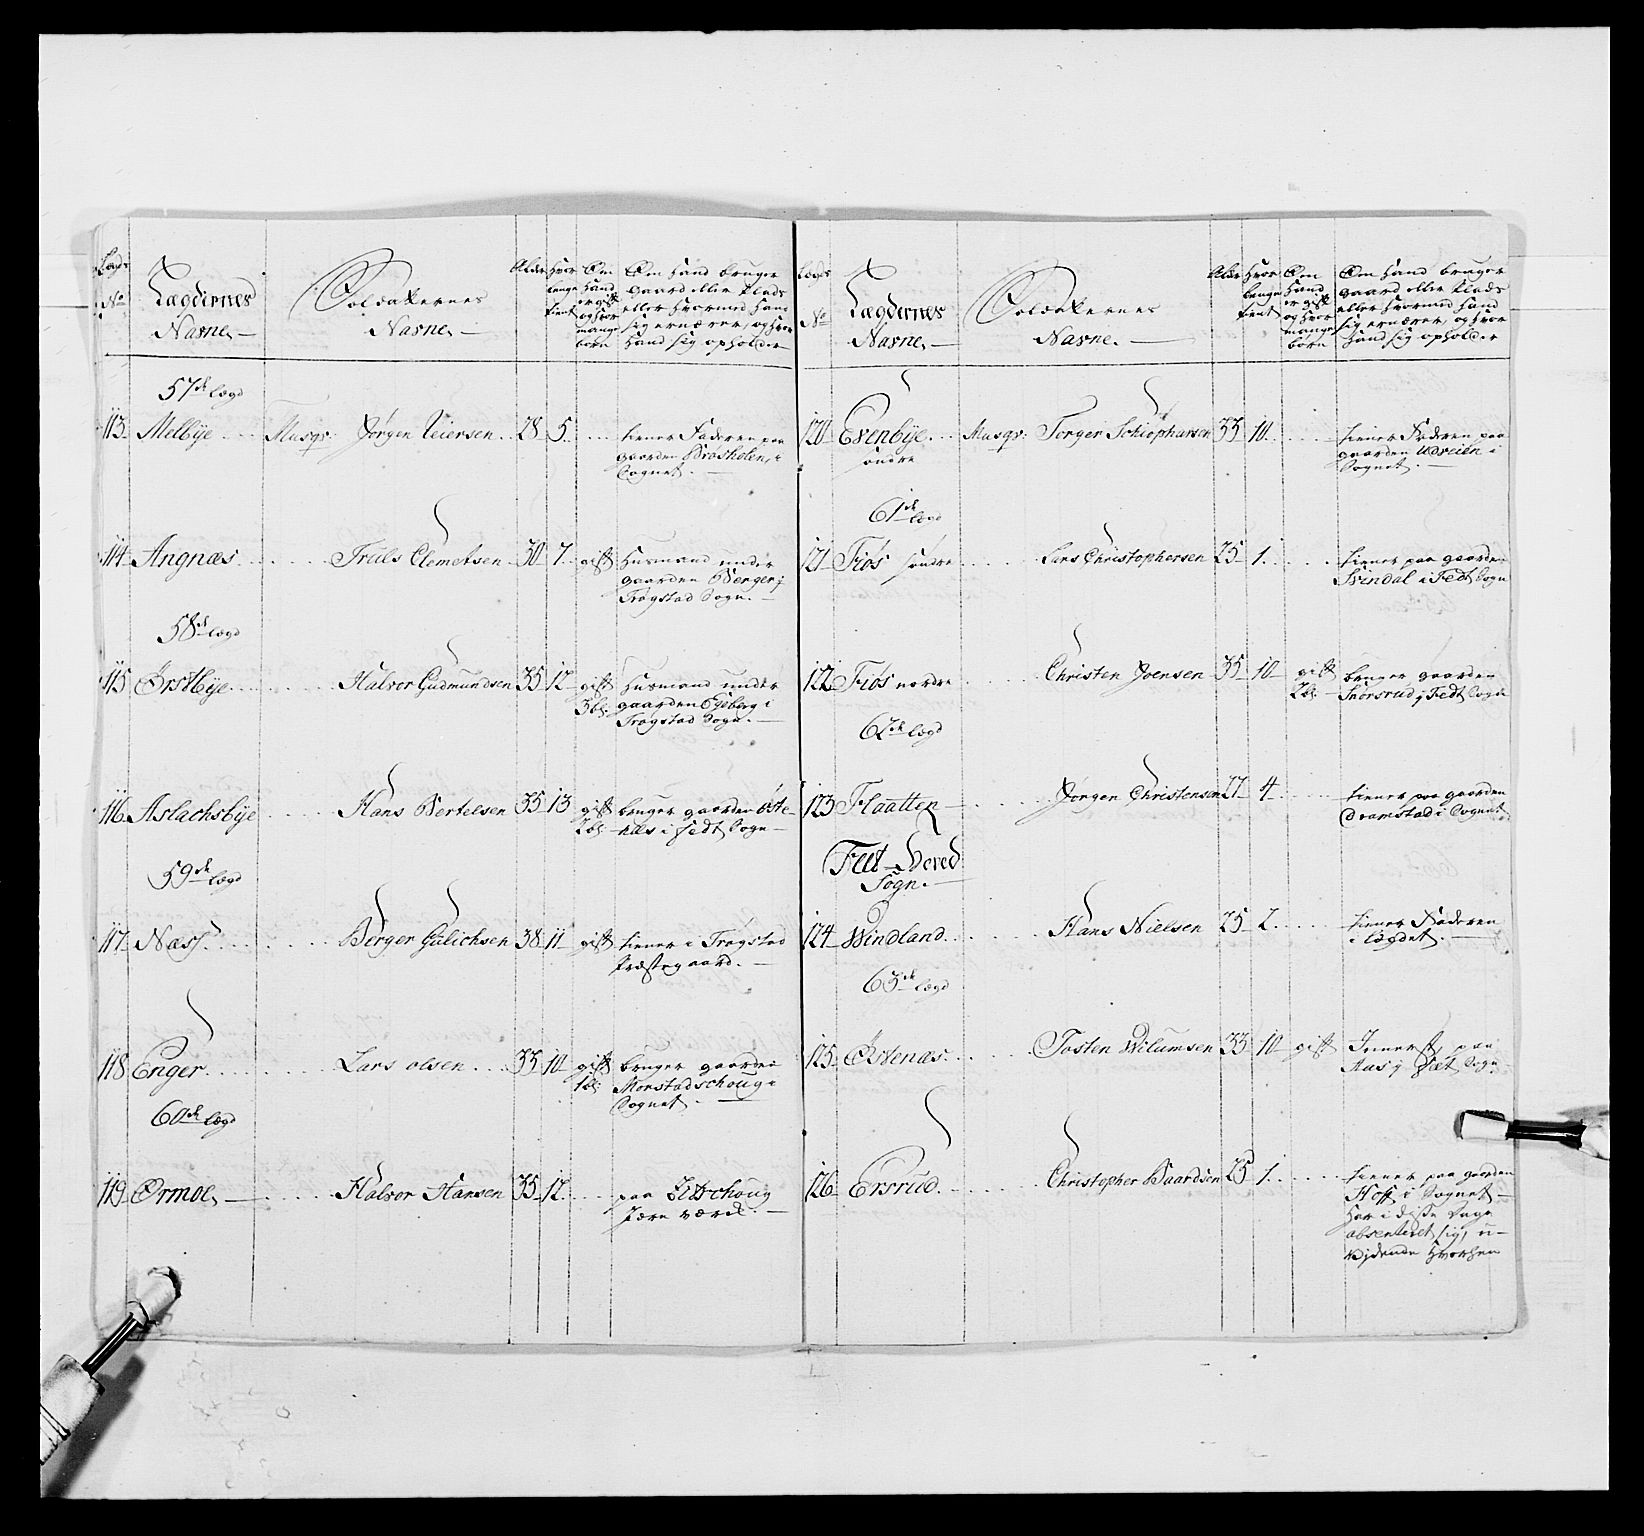 Lægd
No
Lægdernes
Nafne.
Soldatternes
Nafne.
Alder
Hvor
længe
tient
Om
Hand
er gift
og Hvor
mange
børn
Om Hand bruger
gaard eller Plads
eller Hvormed Hand
sig ernærer, og Hvor
Hand sig opholder
57de lægd
113 Melbye Musqv: Jørgen 28 5 tiener Faderen paa
gaarden i
Sognet.
114 Angnæs Truls Clemetsen 30 7 gift Husmand under
gaarden Berger j
Trøgstad Sogn.
58de lægd
115 Ørstbye Halvor Gudmundsen 35 12 gift Husmand under
3 b. gaarden Egeberg i
Trøgstad Sogn.
116 Aslachsbye Hans Bertelsen 35 13 gift bruger gaarden Øste-
2 b. næs i Fedt Sogn
59de lægd
117 Næss Berger Gulichsen 38 11 gift tiener i Trøgstad
Præstegaard.
118 Enger Lars olsen 33 10 gift bruger gaarden
1 b. Monstadschoug i
Sognet.
60de lægd
119 Ormoe Halvor Hansen 35 12 paa
Jern værck.
Lægds
No
Lægdernes
Nafne.
Soldatternes
Nafne.
Alder
Hvor
længe
tient
Om
Hand
er gift
og Hvor
mange
børn
Om Hand bruger
gaard eller Plads
eller Hvormed Hand
sig ernærer, og Hvor
Hand sig opholder
120 Evenbye Musqv: Torger 33 10 tiener Faderen paa
søndre gaarden i
Sognet.
61de lægd
121 Fiøs søndre Lars Christophersen 25 1 tiener paa gaarden
Svindal i Fedt Sogn
122 Fiøs nordre Christen Joensen 35 10 gift bruger gaarden
2 b. j Fedt Sogn
62de lægd
123 Flaatten Jørgen Christensen 27 4 tiener paa gaarden
Dramstad i Sognet
Feet Hoved
Sogn.
124 Windland Hans Nielsen 25 2 tiener Faderen
i lægdet.
63de lægd
125 Østenæs Tosten Wilumsen 33 10 gift Innerst paa
Aas j Feet Sogn
126 Ersrud Christopher Baardsen 25 1 tiener paa gaarden
Hoff i Sognet
Har i disse Dage
absenteret sig, u-
vidende Hvorhen